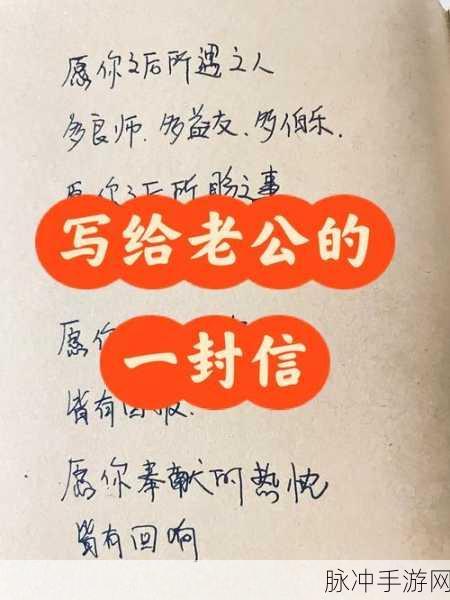 愿你之后所遇之人
多良师、多益友、多伯乐.
愿你之后所盼之事
写给老公的
愿你
一封信
皆有回报.
愿你奉献的热忱
皆有回响
脉冲手游网